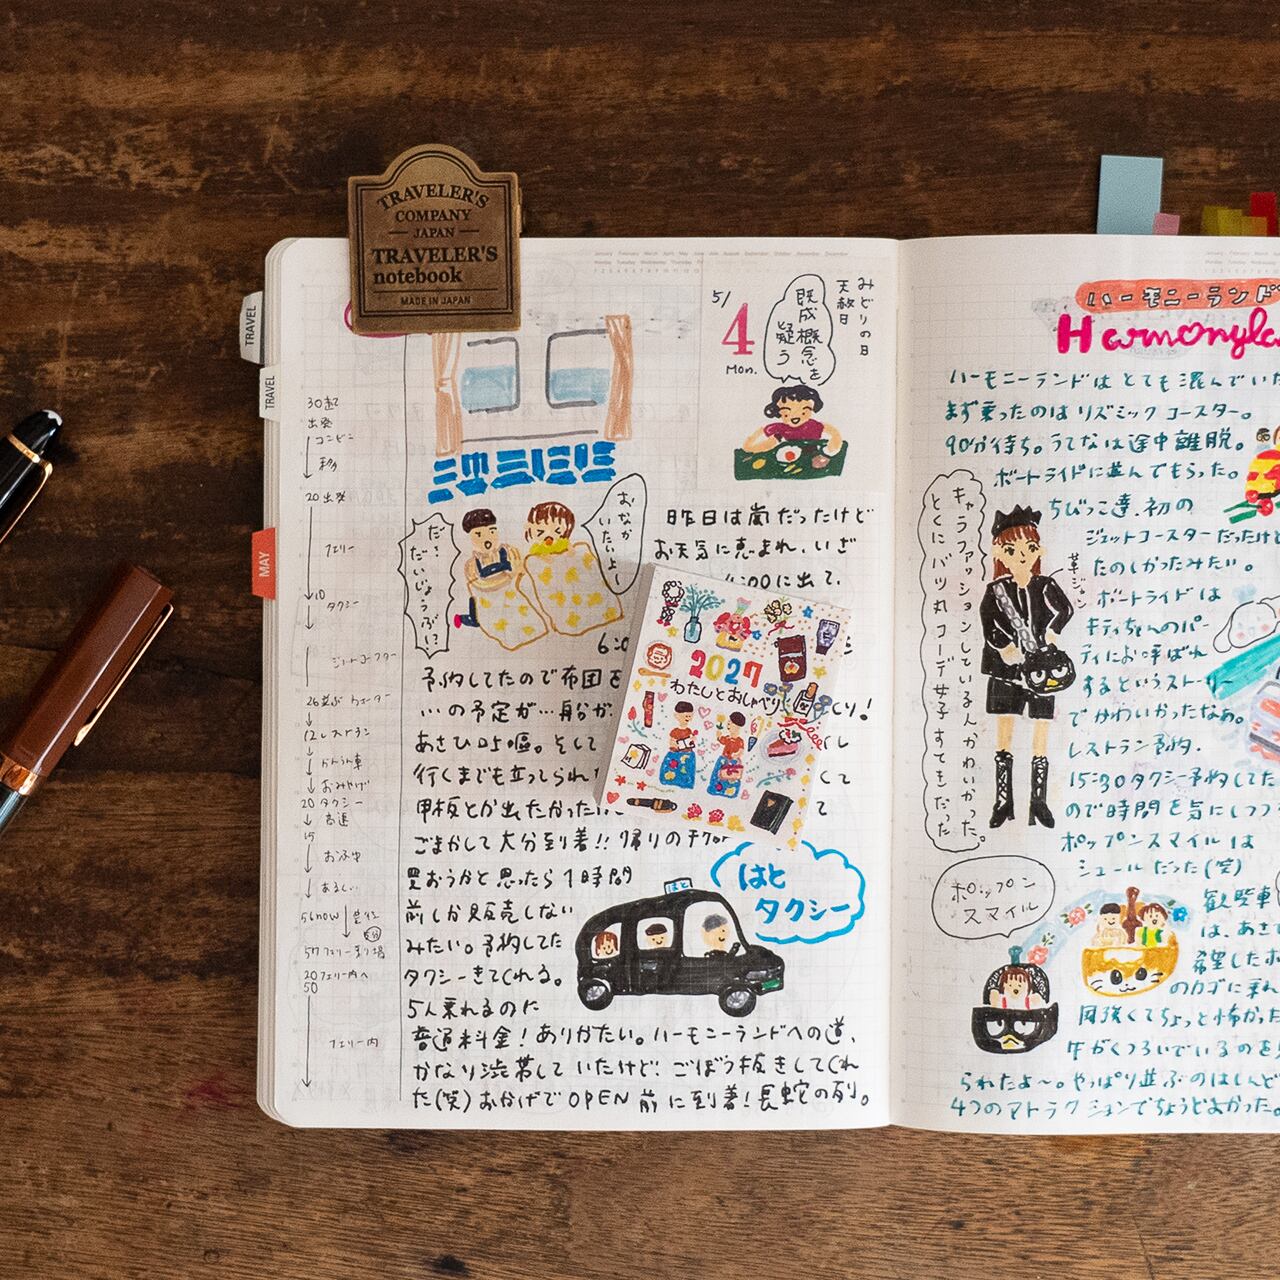 TRAVELER'S
COMPANY
JAPAN
TRAVELER'S
notebook
MADE IN JAPAN
TRAVEL
TRAVEL
MAY
5/
4
Mon.
みどりの日
天赦日
既成概念を
疑う
30起
出発
コンビニ
20 出発
フェリー
10
タクシー
ジェットコースター
12 レストラン
おみやげ
20 タクシー
15
56now
20 フェリー内へ
50
フェリー内
おなかいたいよー
だ…だいじょうぶ!?
昨日は嵐だったけど
お天気に恵まれ、いざ
4:00に出て、
予約してたので布団を
…の予定が…船が
あさひ口と嘔。そして
行くまでも立ってられ
甲板とか出たかった
ごまかして大分到着!! 帰りのチケ
買おうかと思ったら1時間
前しか販売しない
みたい。予約してた
タクシーきてくれる。
5人乗れるのに
普通料金!ありがたい。ハーモニーランドへの道、
かなり渋滞していたけど ごぼう抜きしてくれ
た(笑) おかげでOPEN前に到着!長蛇の列。
はと
タクシー
はと
2027
わたしとおしゃべり
ハーモニーランド
Harmonyla
ハーモニーランドはとても混んでいた
まず乗ったのはリズミックコースター。
90分待ち。うてなは途中離脱。
ボートライドに並んでもらった。
ちびっこ達、初の
ジェットコースターだったけど
たのしかったみたい。
ボートライドは
キティちゃんのパー
ティにお呼ばれ
するというストーリー
でかわいかったなぁ。
レストラン予約.
15:30タクシー予約してた
ので時間を気にしつつ
ポップンスマイルは
シュールだった(笑)
観覧車
は、あさ
希望したポ
のカゴに乗れ
風強くてちょっと怖かった
られたよ〜。やっぱり並ぶのはしんど
4つのアトラクションでちょうどよかった。
キャラファッションしている人かわいかった。
とくにバツ丸コーデ女子すてきだった
革ジャン
ポップン
スマイル